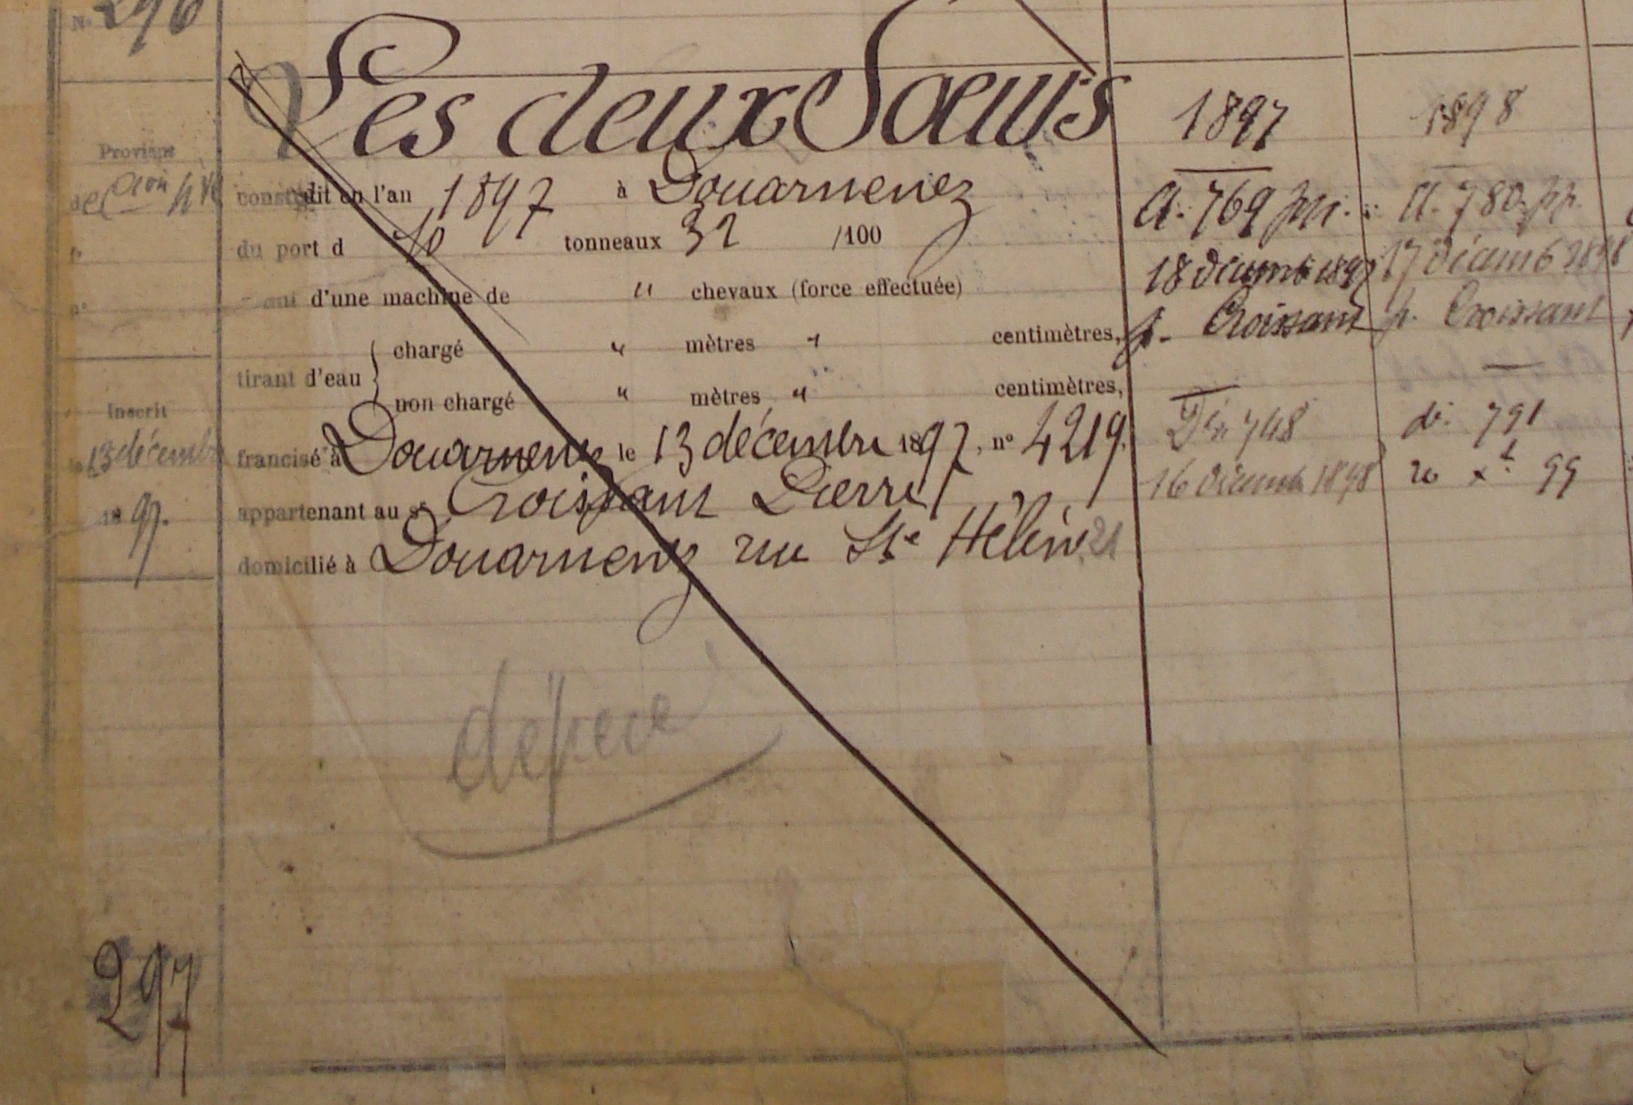 N° 296
Les deux Sœurs
1897
1898
Provient
construit en l'an 1897 à Douarnenez
A. 769
A. 780 pp.
du port d 10 tonneaux 32 /100
18 décemb 1897
17 décemb 1898
d'une machine de " chevaux (force effectuée)
p. Croissant
p. Croissant
chargé " mètres " centimètres,
tirant d'eau
non chargé " mètres " centimètres,
Inscrit
le 13 décembre
1897.
francisé à Douarnenez le 13 décembre 1897, n° 4219.
748
d: 791
appartenant au sr Croissant Pierre
16 décemb 1898
20 xt 99
domicilié à Douarnenez rue Ste Hélène 21
dépecé
297